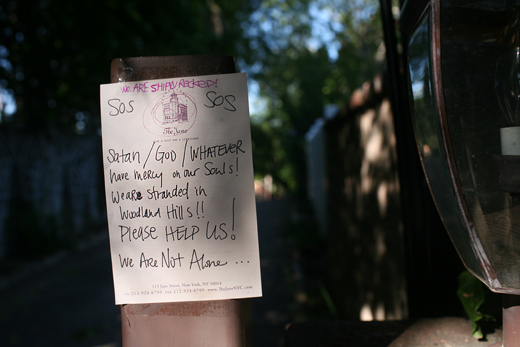 We ARE SHIPWRECKED!
SOS SOS
The Jane
Satan/GOD/WHATEVER
have mercy on our Souls!
We are stranded in
Woodland Hills!!
Please HELP US!
We Are Not Alone ...
113 Jane Street, New York, NY 10014
www.TheJaneNYC.com